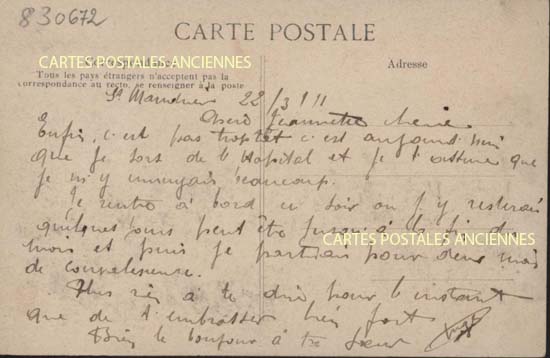 830672
CARTE POSTALE
CARTES POSTALES ANCIENNES
Tous les pays étrangers n'acceptent pas la
correspondance au recto, se renseigner à la poste
Adresse
St Mandrier 22/3/11
Jeannette chérie
Enfin, c'est pas trop tôt c'est aujourd'hui
que je sors de l'Hopital et je t'assure que
je m'y ennuyais beaucoup.
Je rentre à bord ce soir ou j'y resterai
quelques jours peut être jusqu'à la fin du
CARTES POSTALES ANCIENNES
mois et puis je partirai pour deux mois
de convalescence.
Plus rien à te dire pour l'instant
que de t'embrasser bien fort
Bien le bonjour à ta soeur